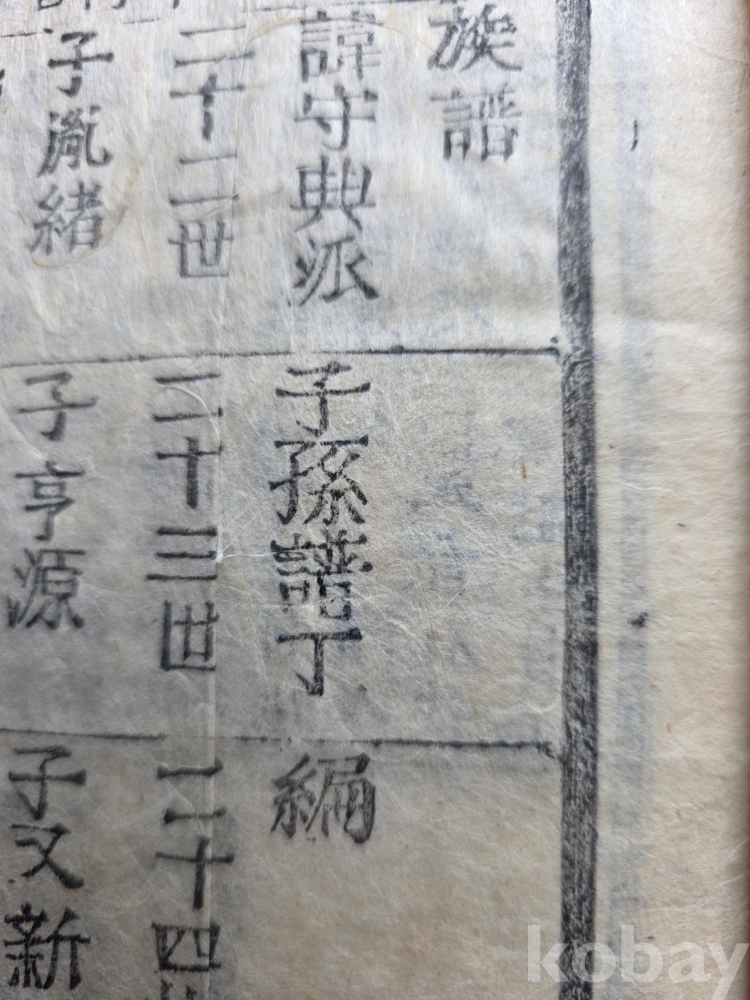 族譜
諱守典派
子孫譜丁
編
二十二世
二十三世
二十四世
子胤緒
子亨源
子又新
kobay